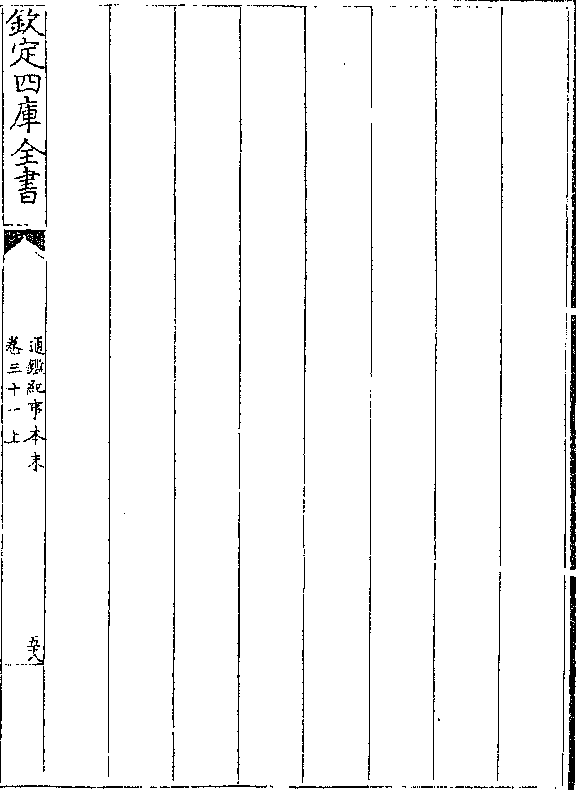 欽定四庫全書
通鑑紀事本末
卷三十一上
五十八